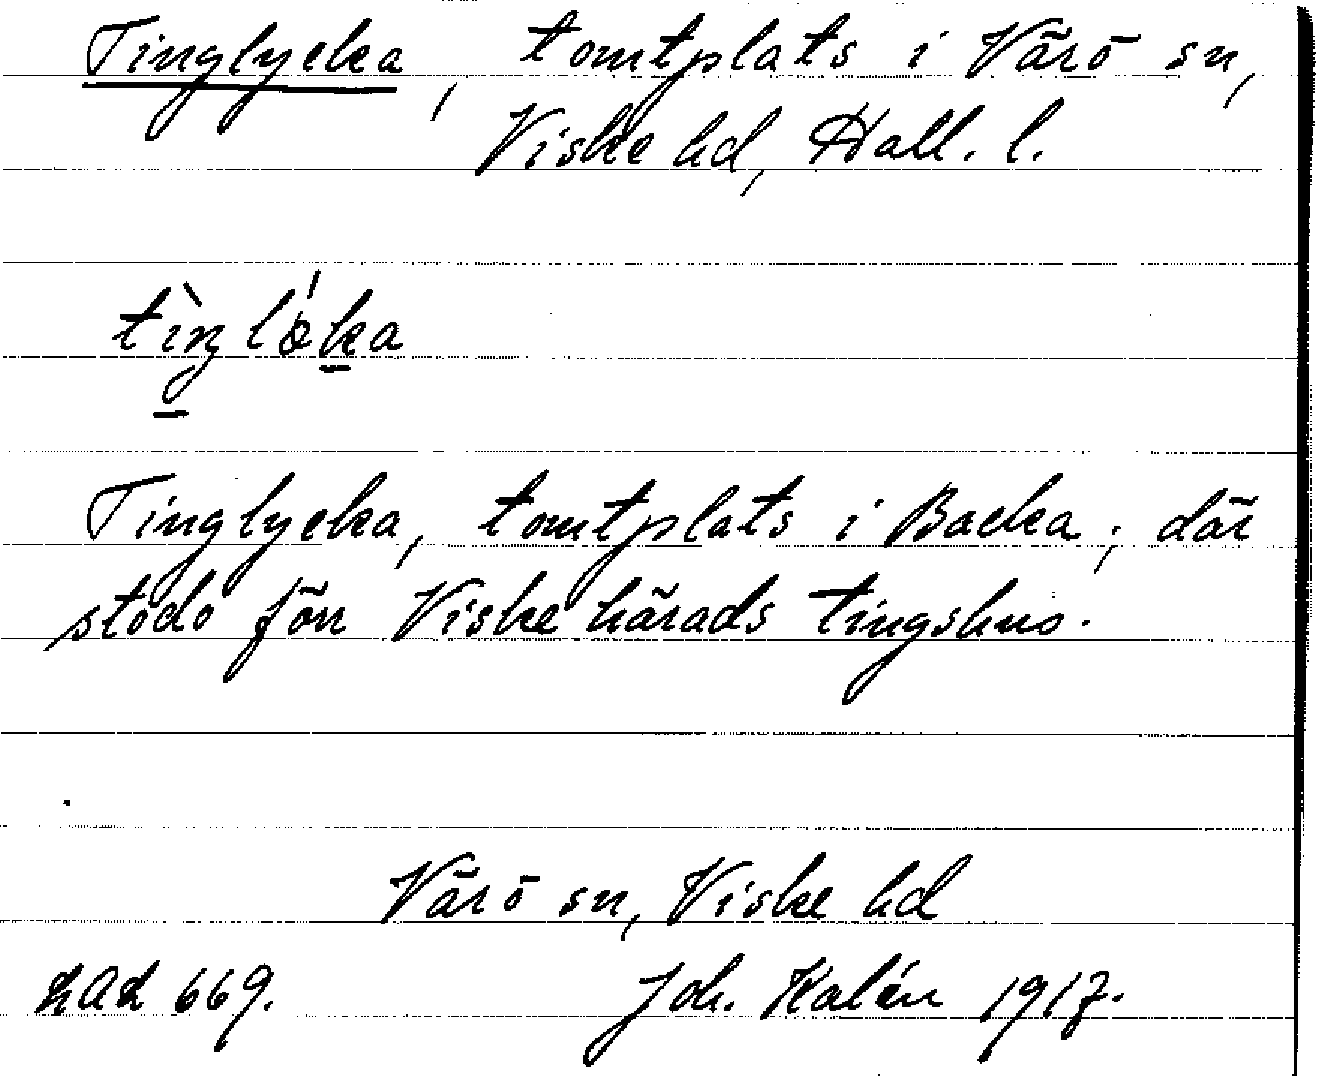 Tinglycka, tomtplats i Värö sn,
Viske hd, Hall. l.
Tinglycka, tomtplats i Backa; där
stodo förr Viske härads tingshus.
Värö sn, Viske hd
LAL 669. Joh. Kalén 1917.